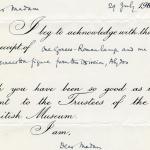 Dear Madam
29 July 196
I beg to acknowledge with th
receipt of one Graeco-Roman lamp and one
figure from Abydos
h you have been so good as
nt to the Trustees of the
itish Museum.
I am,
Dear Madam